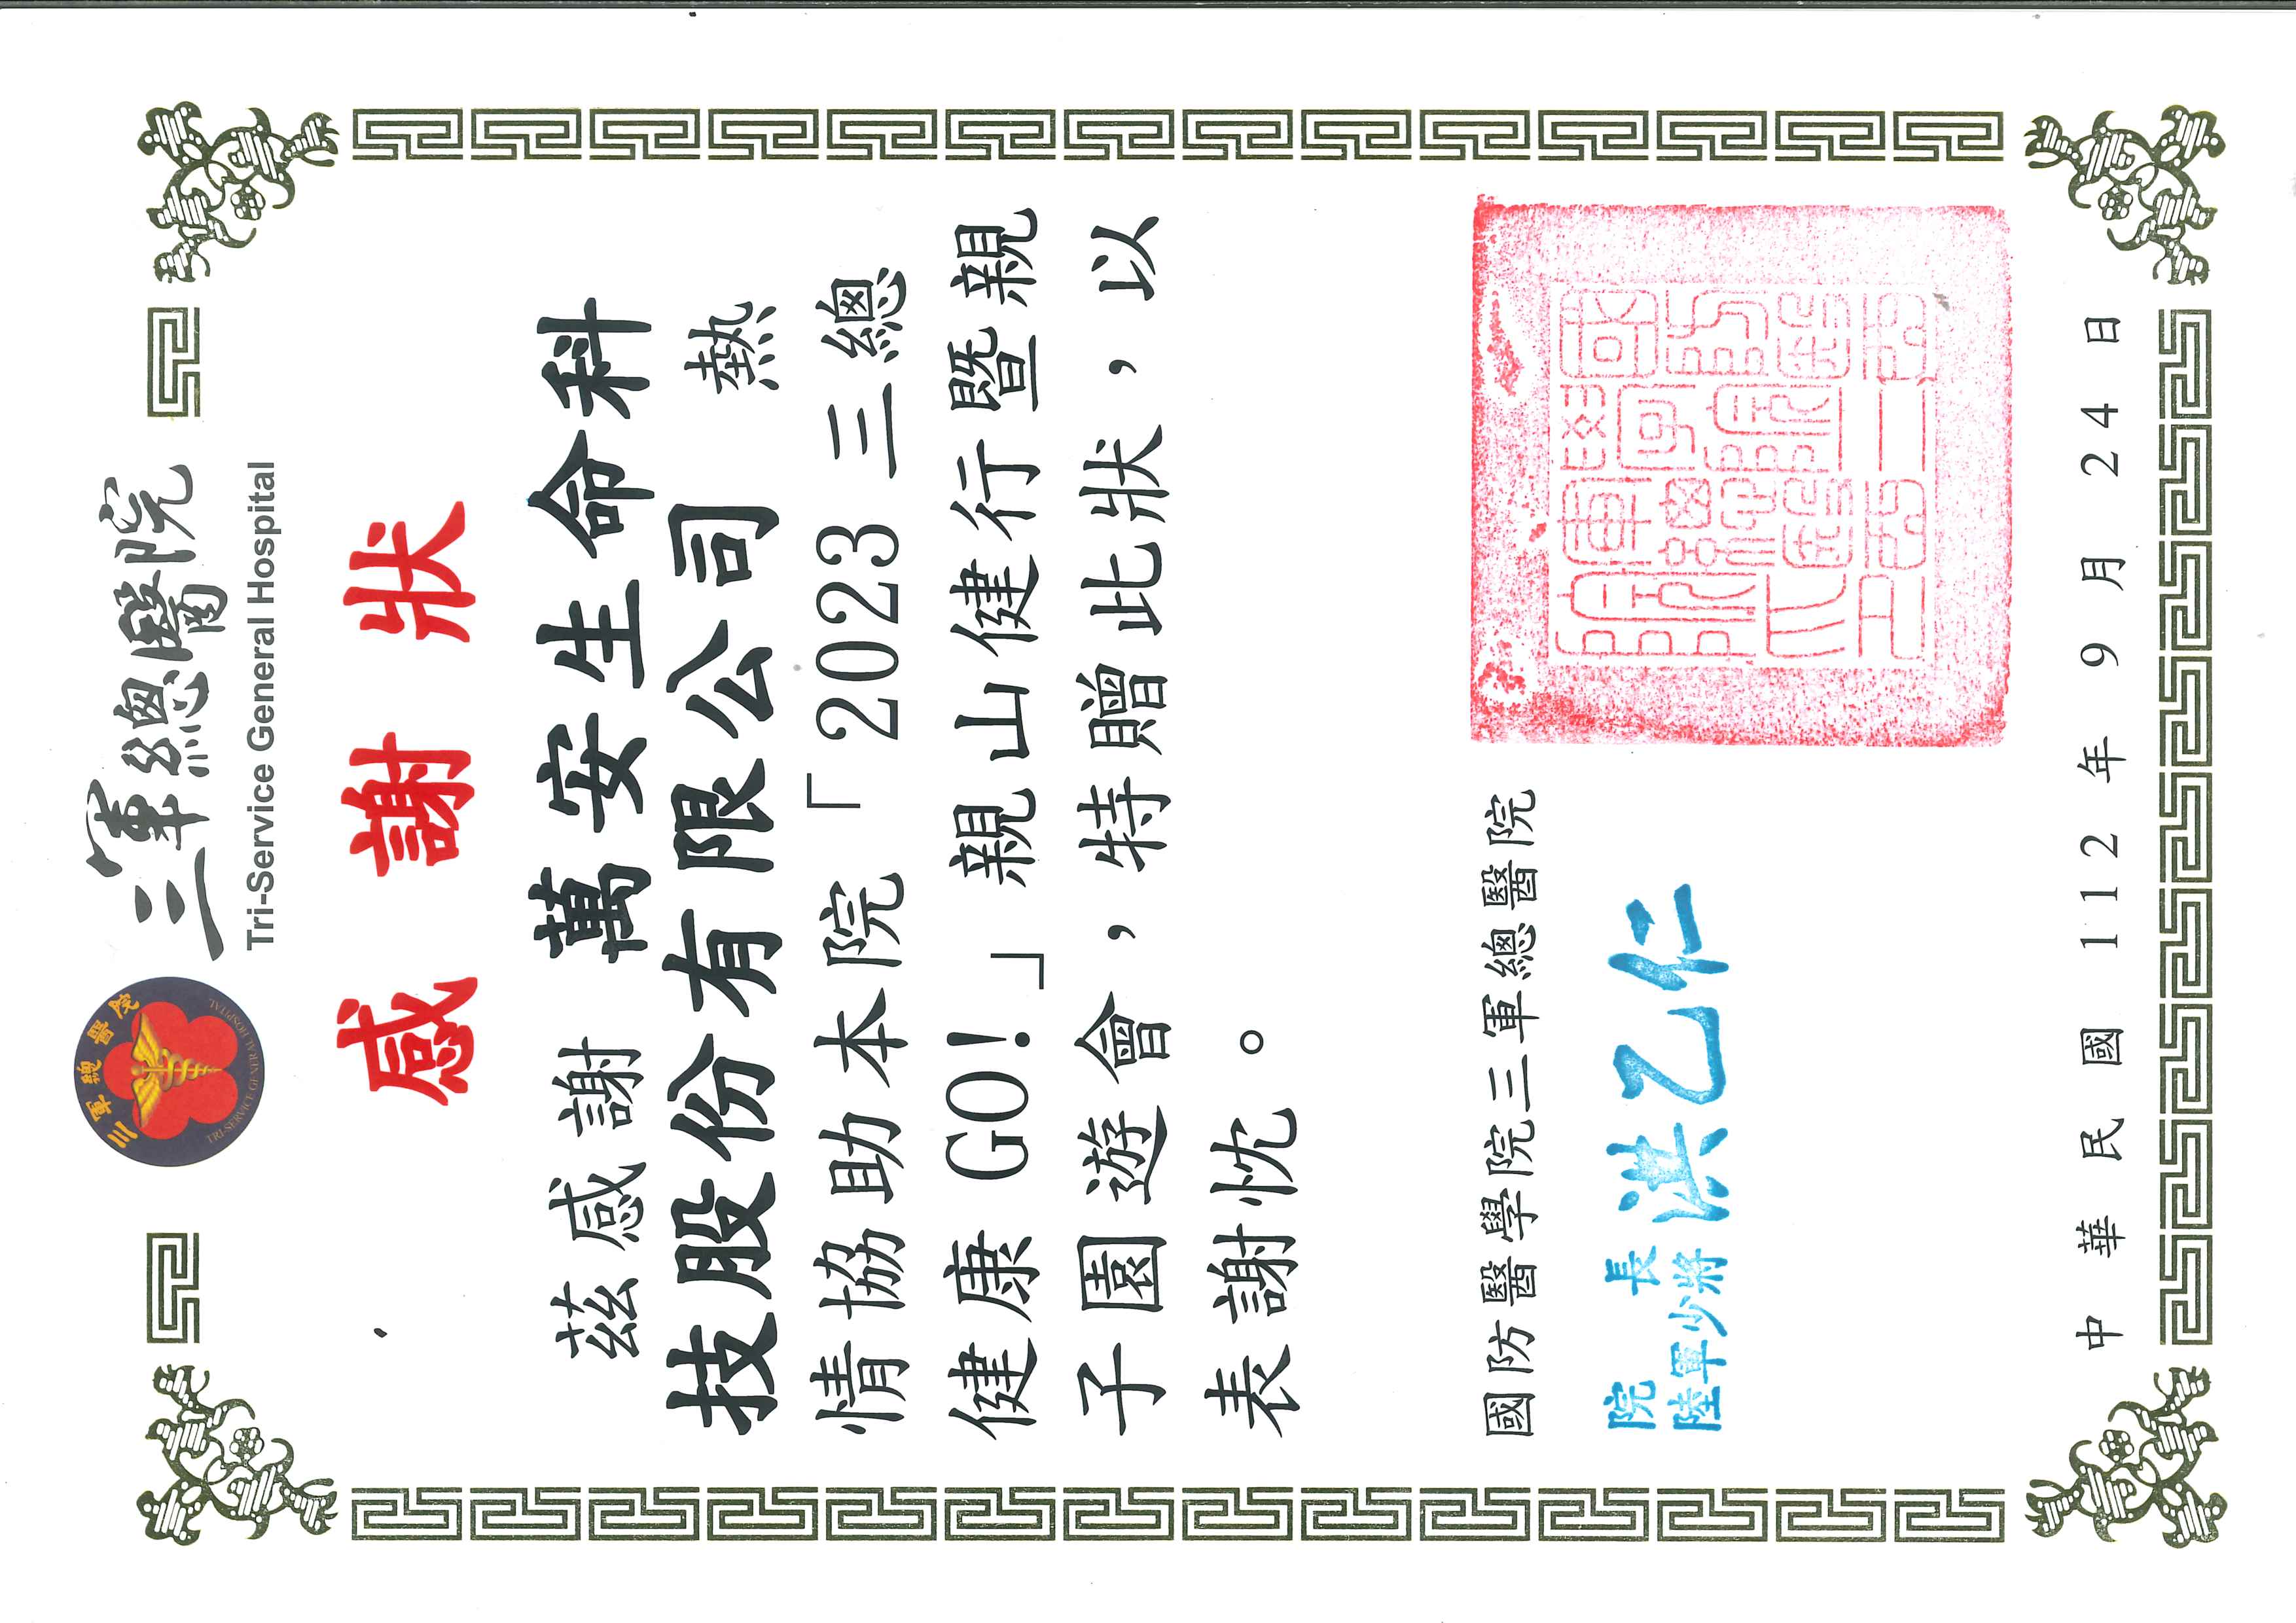 三軍總醫院
TRI-SERVICE GENERAL HOSPITAL
三軍總醫院
Tri-Service General Hospital
感謝狀
茲感謝 萬安生命科
技股份有限公司 熱
情協助本院「2023 三總
健康 GO!」親山健行暨親
子園遊會，特贈此狀，以
表謝忱。
國防醫學院三軍總醫院
院長
陸軍少將
洪乙仁
中華民國 112 年 9 月 24 日